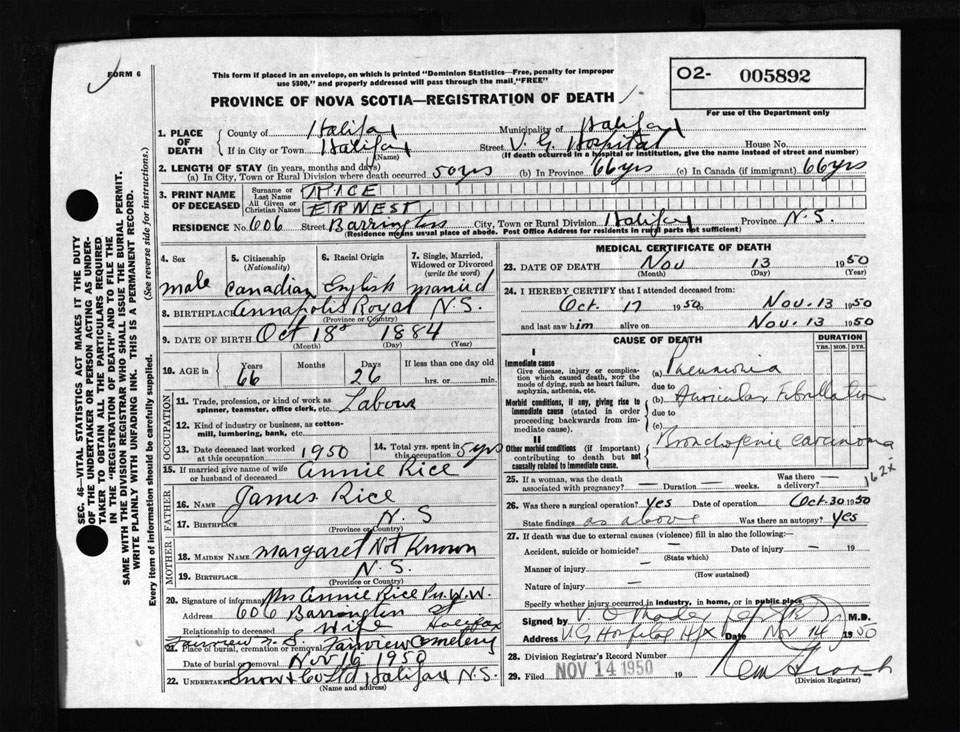 FORM 6
This form if placed in an envelope, on which is printed "Dominion Statistics—Free, penalty for improper
use $300," and properly addressed will pass through the mail "FREE"
O2- 005892
PROVINCE OF NOVA SCOTIA—REGISTRATION OF DEATH
For use of the Department only
SEC. 46—VITAL STATISTICS ACT MAKES IT THE DUTY
OF THE UNDERTAKER OR PERSON ACTING AS UNDER-
TAKER TO OBTAIN ALL THE PARTICULARS REQUIRED
IN THE "REGISTRATION OF DEATH" AND TO FILE THE
SAME WITH THE DIVISION REGISTRAR WHO SHALL ISSUE THE BURIAL PERMIT.
WRITE PLAINLY WITH UNFADING INK. THIS IS A PERMANENT RECORD.
Every item of information should be carefully supplied. (See reverse side for instructions.)
1. PLACE OF DEATH County of Halifax Municipality of Halifax
If in City or Town Halifax Street V. G. Hospital House No.
(Name) (If death occurred in a hospital or institution, give the name instead of street and number)
2. LENGTH OF STAY (in years, months and days)
(a) In City, Town or Rural Division where death occurred 50 yrs (b) In Province 66 yrs (c) In Canada (if immigrant) 66 yrs
3. PRINT NAME OF DECEASED Surname or Last Name RICE
All Given or Christian Names ERNEST
RESIDENCE No. 606 Street Barrington City, Town or Rural Division Halifax Province N.S.
(Residence means usual place of abode. Post Office Address for residents in rural parts not sufficient)
4. Sex 5. Citizenship (Nationality) 6. Racial Origin 7. Single, Married, Widowed or Divorced (write the word)
male Canadian English married
8. BIRTHPLACE Annapolis Royal N.S.
(Province or Country)
9. DATE OF BIRTH Oct 18 1884
(Month) (Day) (Year)
10. AGE in Years Months Days If less than one day old
66 26 hrs. or min.
OCCUPATION
11. Trade, profession, or kind of work as spinner, teamster, office clerk, etc. Labour
12. Kind of industry or business, as cotton-mill, lumbering, bank, etc.
13. Date deceased last worked at this occupation 1950 14. Total yrs. spent in this occupation 5 yrs
15. If married give name of wife or husband of deceased Annie Rice
FATHER
16. Name James Rice
17. Birthplace N.S
(Province or Country)
MOTHER
18. Maiden Name Margaret Not Known
19. Birthplace N.S.
(Province or Country)
20. Signature of informant Mrs Annie Rice Per W.W.
Address 606 Barrington St. Halifax
Relationship to deceased Wife
21. Place of burial, cremation or removal Fairview N.S. Fairview Cemetery
Date of burial or removal Nov 16 1950
22. Undertaker Snow & Co Ltd, Halifax N.S.
(Name and address)
MEDICAL CERTIFICATE OF DEATH
23. DATE OF DEATH Nov 13 1950
(Month) (Day) (Year)
24. I HEREBY CERTIFY that I attended deceased from:
Oct. 17 1950, to Nov. 13 1950
and last saw him alive on Nov. 13 1950
CAUSE OF DEATH DURATION
YRS. MOS. DYS.
I
Immediate cause
Give disease, injury or complication which caused death, not the mode of dying, such as heart failure, asphyxia, asthenia, etc.
(a) Pneumonia
due to
Morbid conditions, if any, giving rise to immediate cause (stated in order proceeding backwards from immediate cause).
(b) Auricular Fibrillation
due to
(c)
II
Other morbid conditions (if important) contributing to death but not causally related to immediate cause.
Bronchogenic carcinoma
162x
25. If a woman, was the death associated with pregnancy? — Duration — weeks. Was there a delivery? —
26. Was there a surgical operation? Yes Date of operation Oct. 30 1950
State findings as above Was there an autopsy? Yes
27. If death was due to external causes (violence) fill in also the following:—
Accident, suicide or homicide? — Date of injury — 19
(State which)
Manner of injury —
(How sustained)
Nature of injury —
Specify whether injury occurred in industry, in home, or in public place
Signed by V. O. M.D.
Address V.G Hospital Hfx Date Nov 14 1950
28. Division Registrar's Record Number
29. Filed NOV 14 1950 19
(Division Registrar)